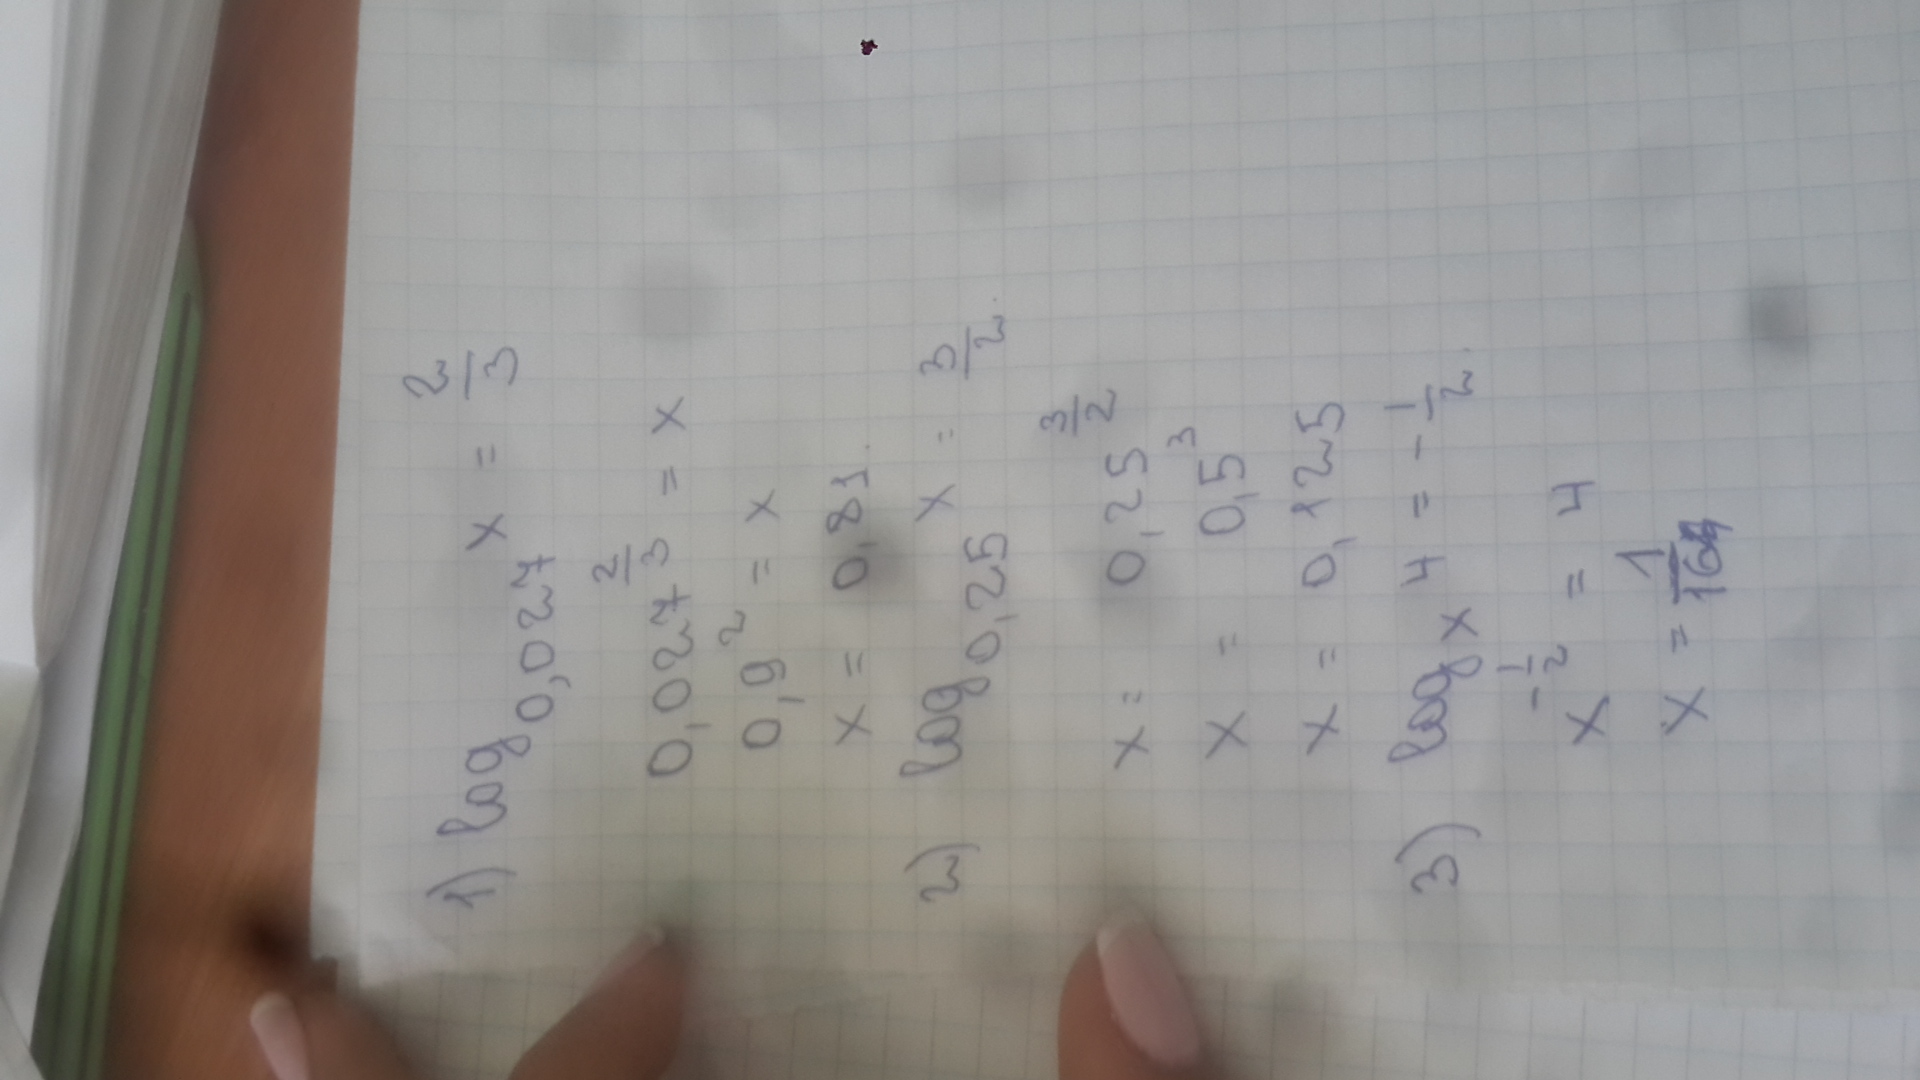 1) log₀,₀₂₇ x = 2/3
0,027^(2/3) = x
0,9² = x
x = 0,81
2) log₀,₂₅ x = 3/2
x = 0,25^(3/2)
x = 0,5³
x = 0,125
3) logₓ 4 = -1/2
x^(-1/2) = 4
x = 1/16